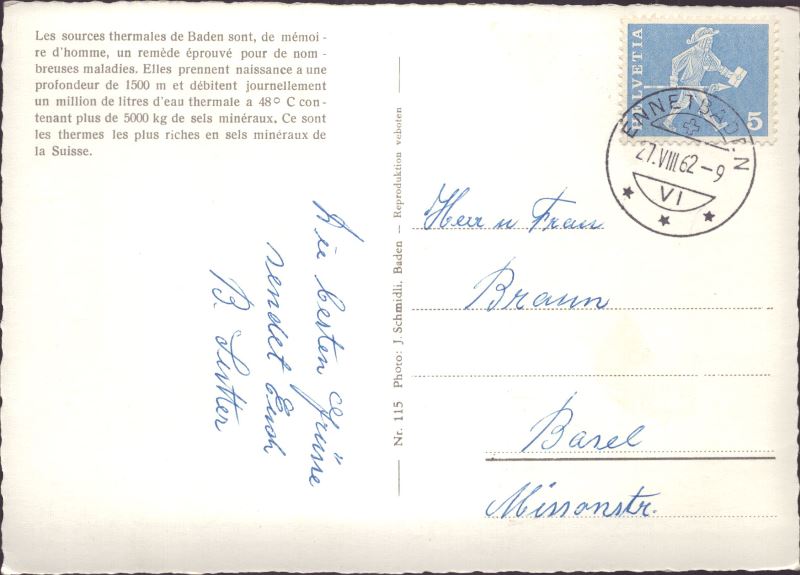 Les sources thermales de Baden sont, de mémoi-
re d'homme, un remède éprouvé pour de nom-
breuses maladies. Elles prennent naissance a une
profondeur de 1500 m et débitent journellement
un million de litres d'eau thermale a 48° C con-
tenant plus de 5000 kg de sels minéraux. Ce sont
les thermes les plus riches en sels minéraux de
la Suisse.
Die besten Grüsse
sendet Euch
B. Sutter
Nr. 115 Photo: J. Schmidli, Baden — Reproduktion veboten
HELVETIA
5
ENNETBADEN
27.VIII.62-9
VI
Herr u Frau
Braun
Basel
Missonstr.